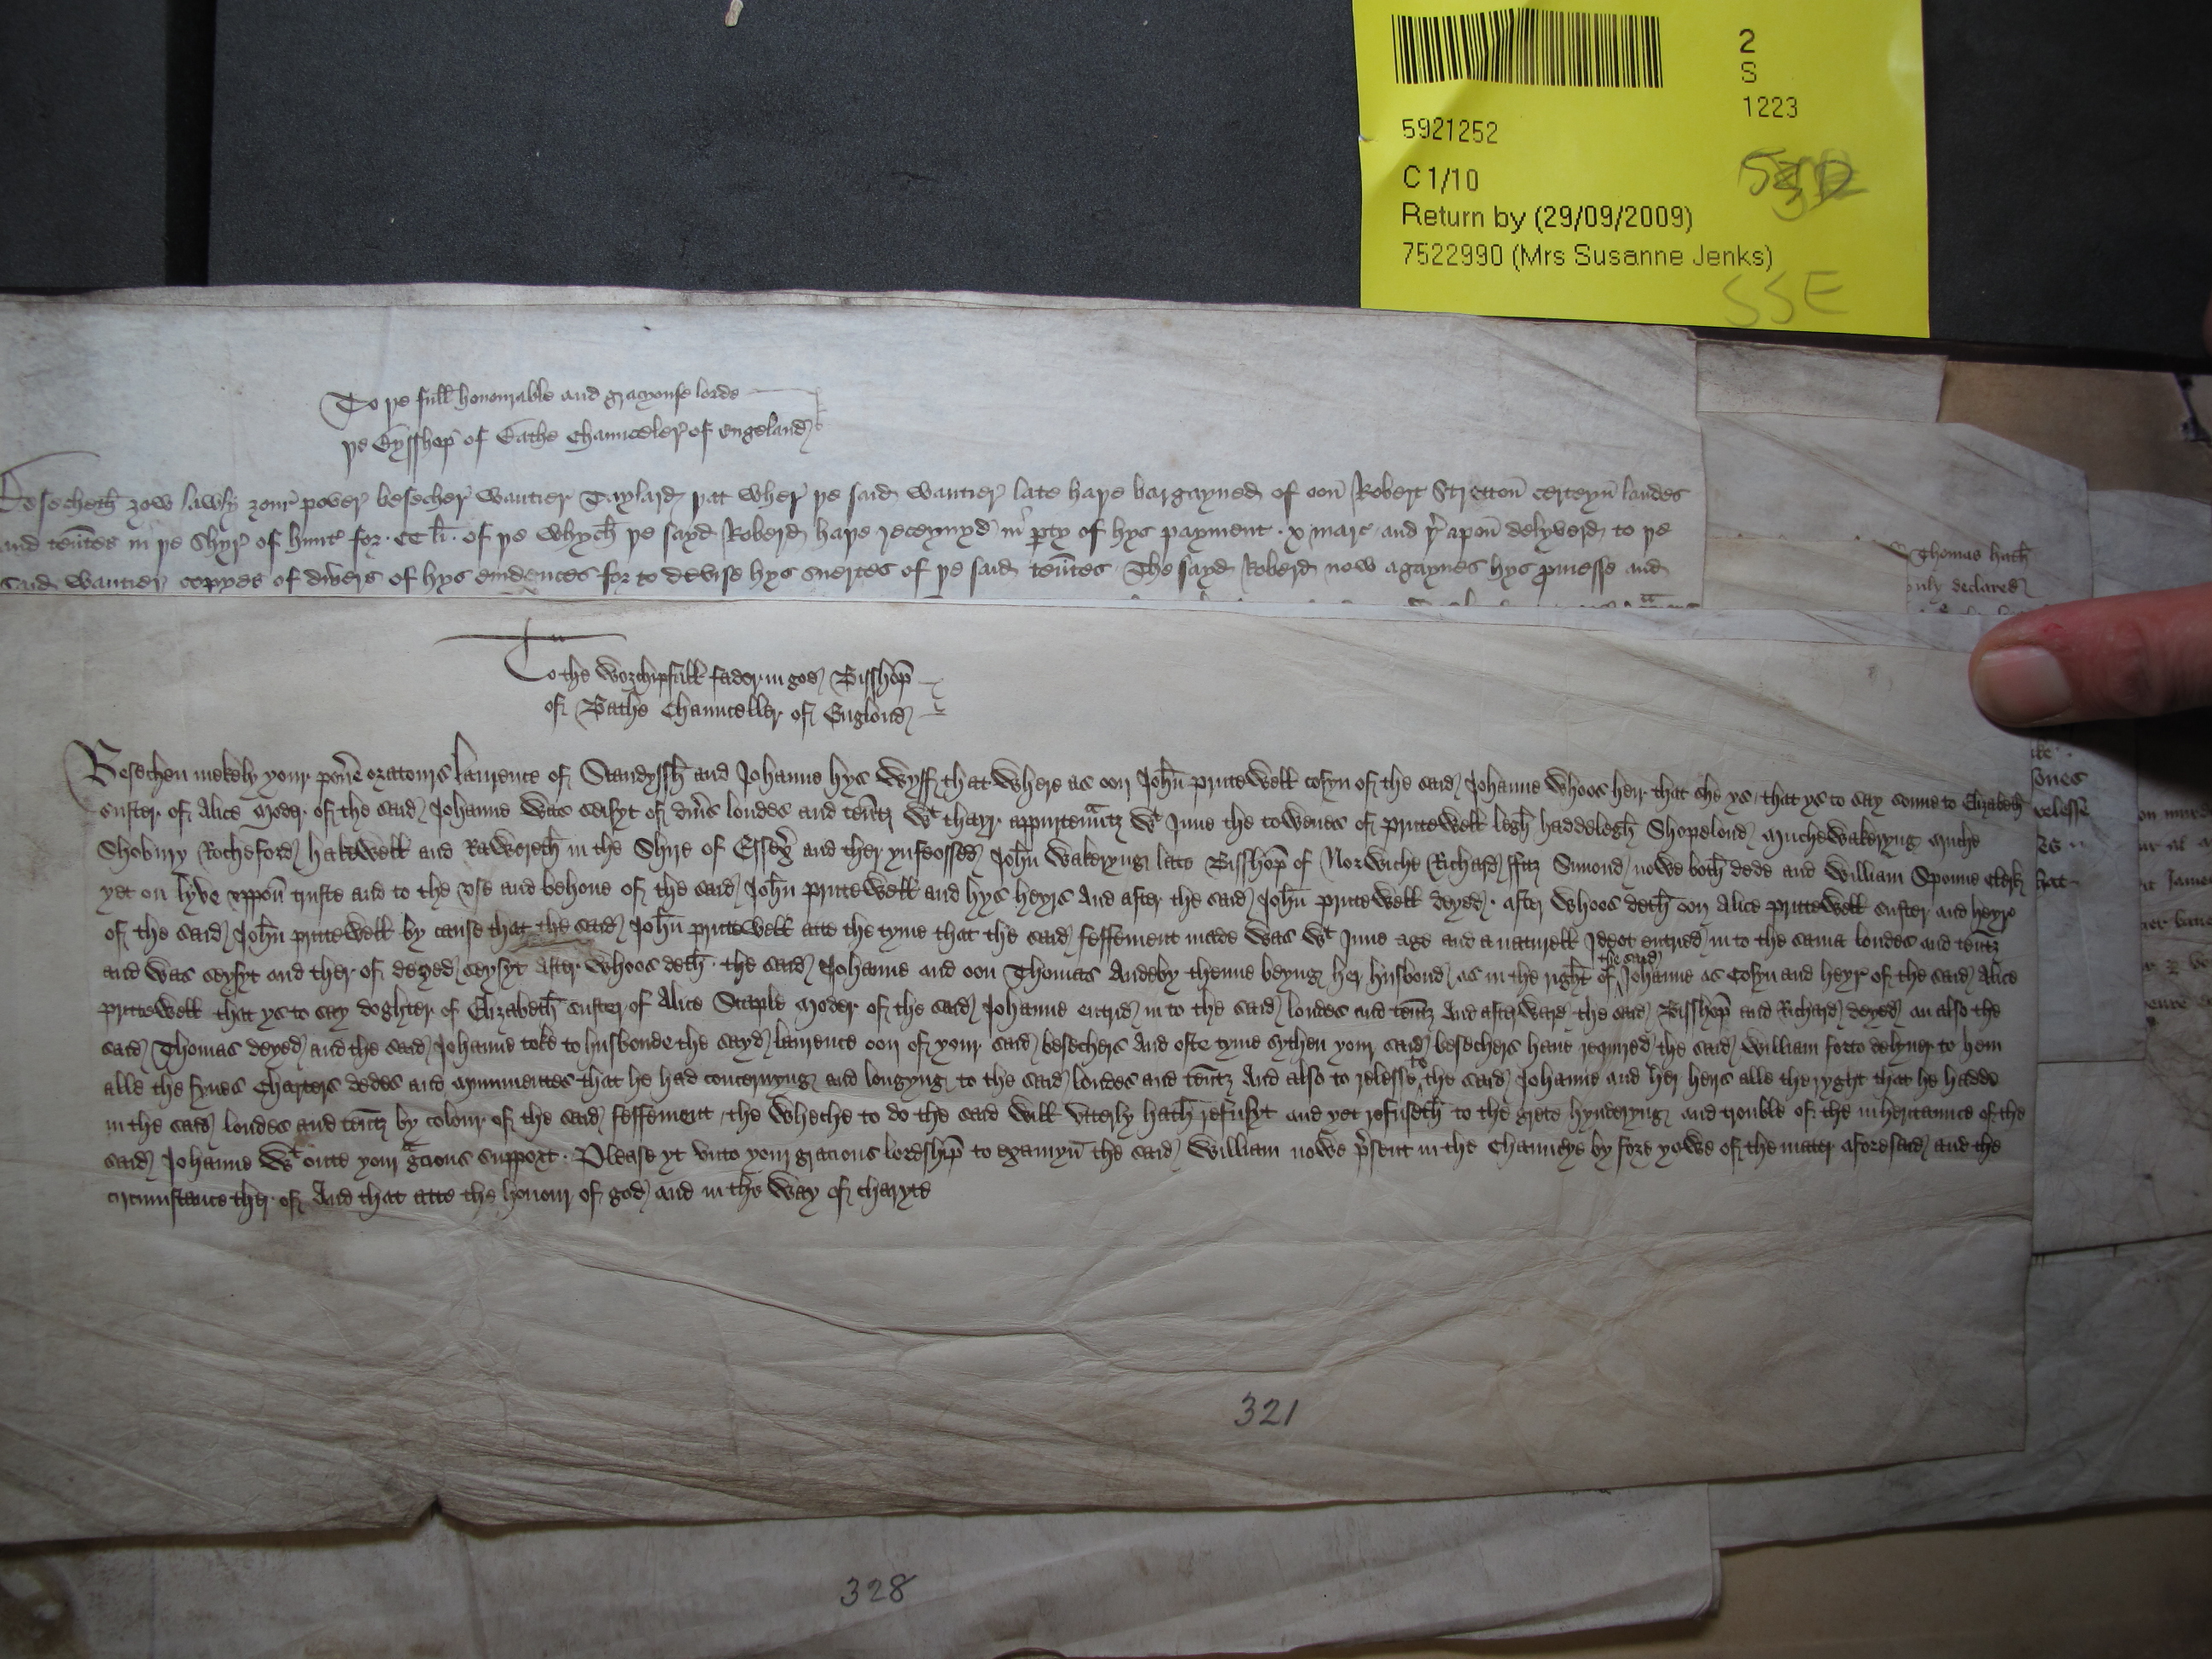 2
S
1223
5921252
C 1/10
Return by (29/09/2009)
7522990 (Mrs Susanne Jenks)
SSE
To þe full honourable and gracyouse lorde
þe Bysshop of Bathe Chaunceler of Engeland
Besecheth zow lawly zour pover besecher Wautier Taylard þat wher þe said Wautier late haþe bargayned of oon Robert Stretton certeyn landes
and tentes in þe Shyr of Hunt for CC li. of þe whych þe sayd Roberd haþe receyvyd in pty of hys payment x marc and þr apon delyverd to þe
said Wautier copyes of divers of hys evidences for to devise hys suertes of þe said tentes The sayd Roberd now agaynes hys pmesse and
Thomas hath
declared
To the worchipfull fader in god Bisshop
of Bathe Chaunceller of Englond
Besechen mekely your povre oratours Laurence of Standyssh and Johanne hys wyff that where as oon John Prittewell cosyn of the said Johanne whoos heir that she ys that ys to say sonne to Elizabeth
suster of Alice moder of the said Johanne was seasyt of divs londes and tentz wt thayr appurtenantz wt Inne the townes of Prittewell Legh Haddelegh Shopelond Muche Wakeryng Muche
Shobury Rocheford Hakewell and Rawereth in the Shire of Essex and ther ynfeoffed John Wakeryng late Bisshop of Norwiche Richard Fitz Simond nowe both dede and William Sponne clerk
yet on lyve uppon truste and to the use and behove of the said John Prittewell and hys heyrs And after the said John Prittewell deyed after whoos deth oon Alice Prittewell suster and heyre
of the said John Prittewell by cause that the said John Prittewell atte the tyme that the said feffement made was wt Inne age and a naturell Ideot entred in to the same londes and tentz
and was seysyt and ther of deyed seysyt After whoos deth the said Johanne and oon Thomas Andeby thenne beyng her husbond as in the right of the said Johanne as Cosyn and heyr of the said Alice
Prittewell that ys to say doghter of Elizabeth suster of Alice Staple moder of the said Johanne entrid in to the said londes and tentz And afterward the said Bisshop and Richard deyed an also the
said Thomas deyed and the said Johanne toke to husbonde the sayd Laurence oon of your said besechers And ofte tyme sythen your said besechers have required the said William forto delyver to hem
alle the fynes Charters dedes and mynumentes that he had concernyng and longyng to the said londes and tentz And also to relesse to the said Johanne and her heirs alle the ryght that he hadde
in the said londes and tentz by colour of the said feffement the wheche to do the said Will utterly hath refusyt and yet refuseth to the grete hynderyng and trouble of the inheritaunce of the
said Johanne wt oute your gracious support. Please yt unto your gracious lordship to examyn the said William nowe present in the Chauncrye by fore yowe of the mater aforesaid and the
circumstance ther of And that atte the honour of god and in the way of charyte
321
328